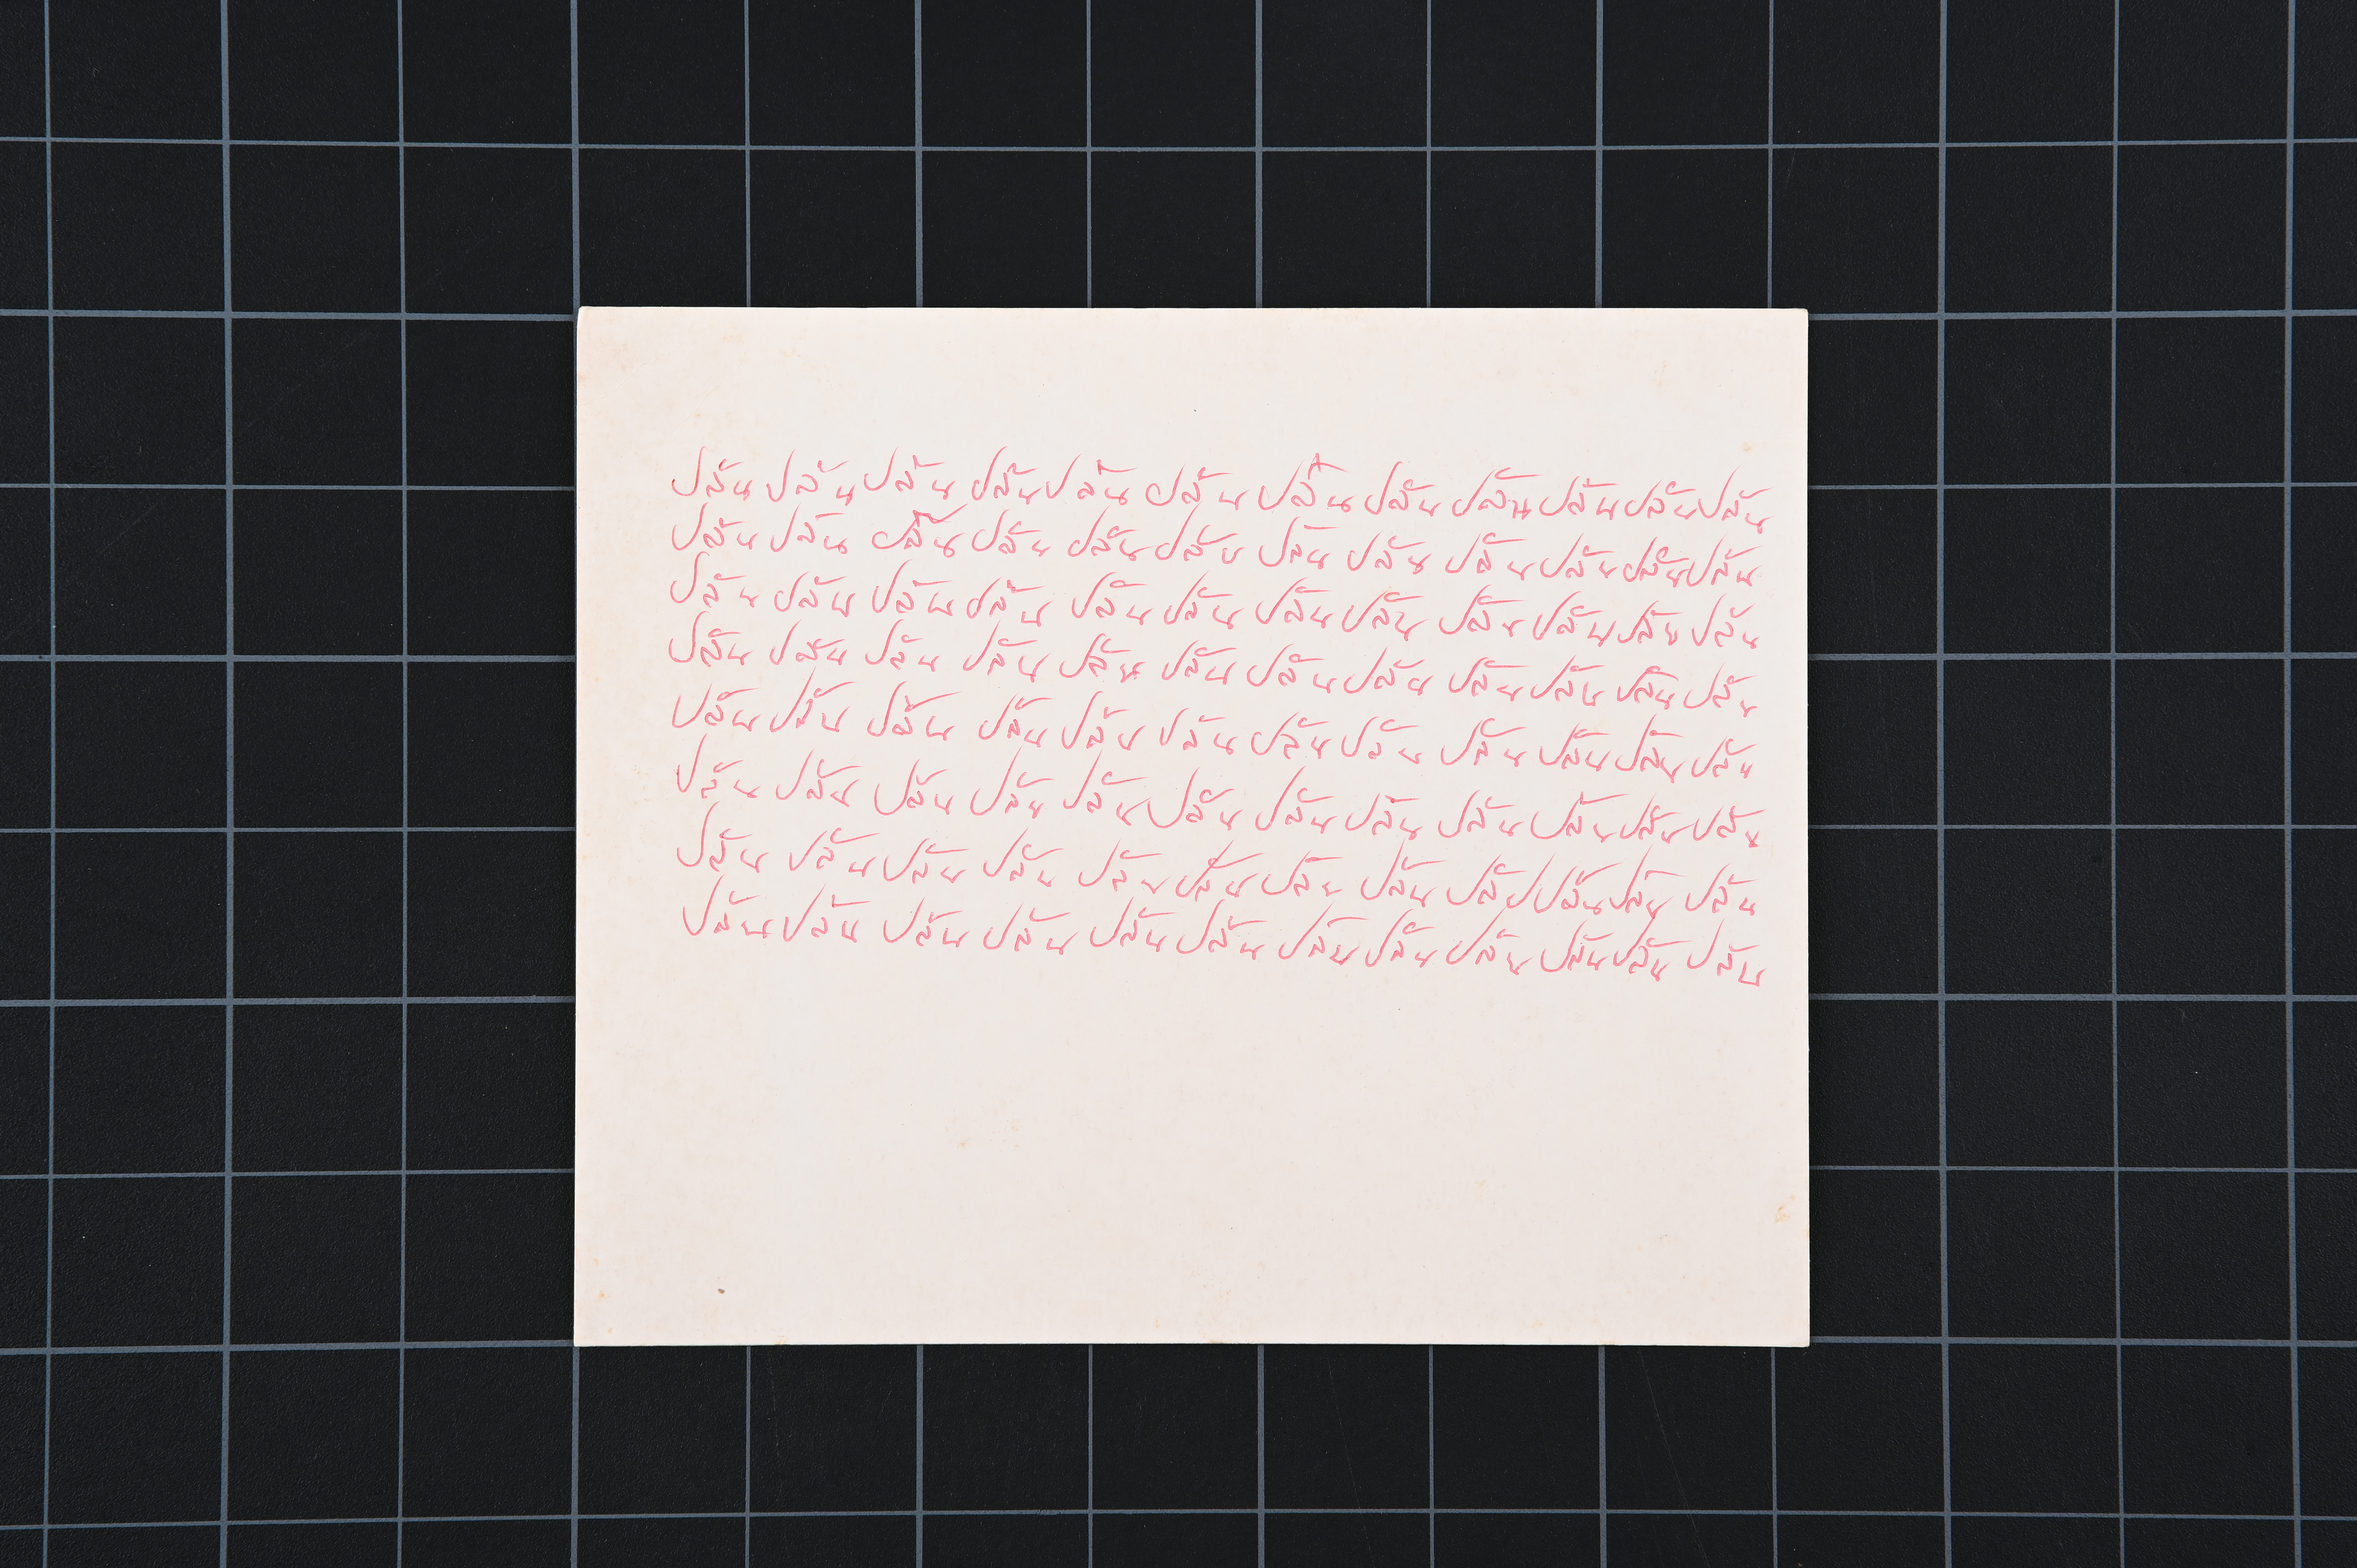 ปลัน ปลัน ปลัน ปลัน ปลัน ปลัน ปลัน ปลัน ปลัน ปลัน ปลัน ปลัน
ปลัน ปลัน ปลัน ปลัน ปลัน ปลัน ปลัน ปลัน ปลัน ปลัน ปลัน ปลัน
ปลัน ปลัน ปลัน ปลัน ปลัน ปลัน ปลัน ปลัน ปลัน ปลัน ปลัน ปลัน
ปลัน ปลัน ปลัน ปลัน ปลัน ปลัน ปลัน ปลัน ปลัน ปลัน ปลัน ปลัน
ปลัน ปลัน ปลัน ปลัน ปลัน ปลัน ปลัน ปลัน ปลัน ปลัน ปลัน ปลัน
ปลัน ปลัน ปลัน ปลัน ปลัน ปลัน ปลัน ปลัน ปลัน ปลัน ปลัน ปลัน
ปลัน ปลัน ปลัน ปลัน ปลัน ปลัน ปลัน ปลัน ปลัน ปลัน ปลัน ปลัน
ปลัน ปลัน ปลัน ปลัน ปลัน ปลัน ปลัน ปลัน ปลัน ปลัน ปลัน ปลัน